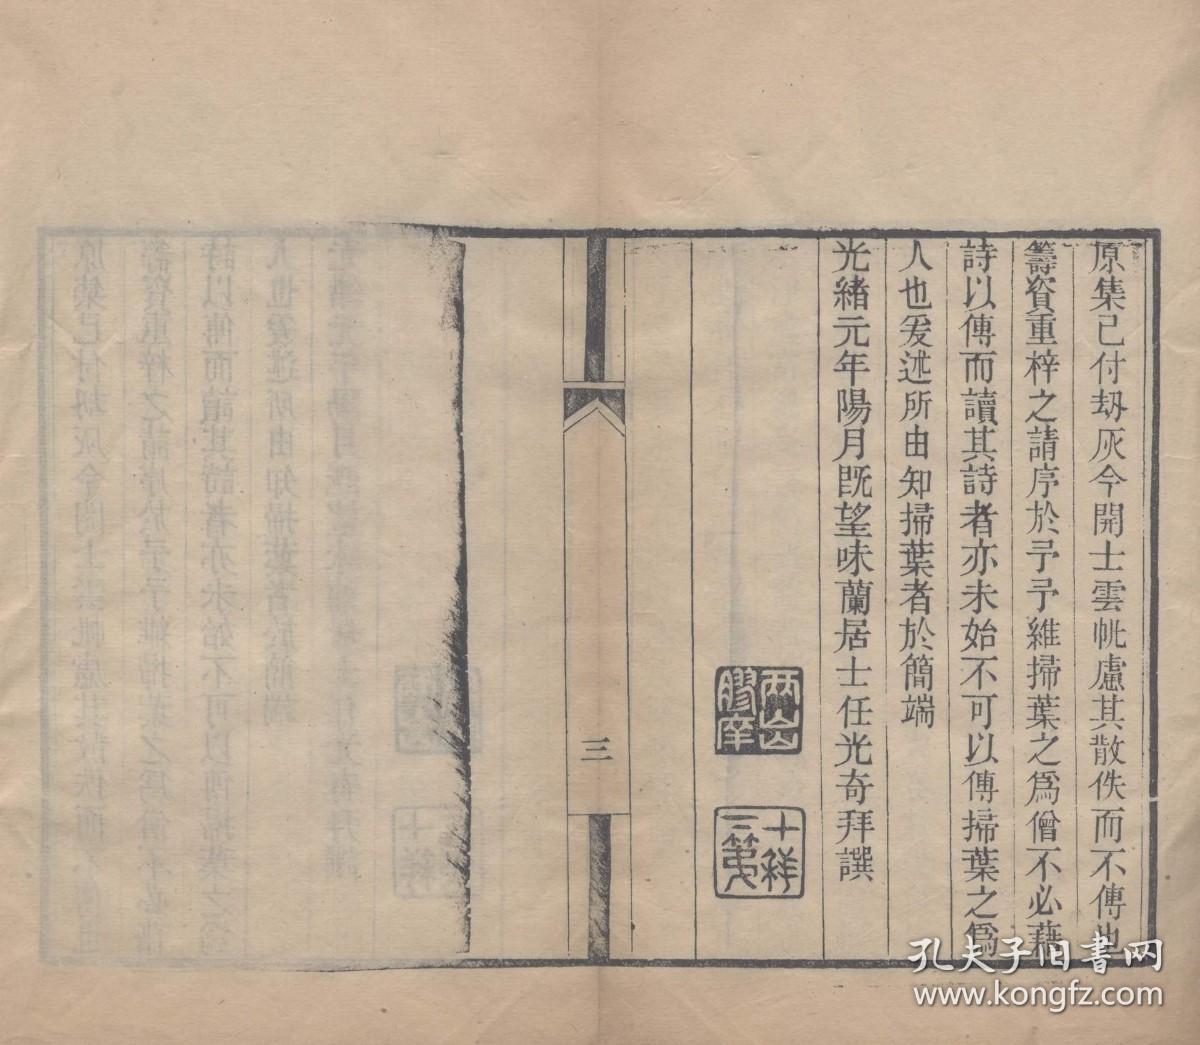 原集已付刼灰今開士雲帆慮其散佚而不傳也
籌資重梓之請序於予予維掃葉之爲僧不必藉
詩以傳而讀其詩者亦未始不可以傳掃葉之爲
人也爰述所由知掃葉者於簡端
光緒元年陽月既望味蘭居士任光奇拜譔
三
孔夫子旧书网
www.kongfz.com